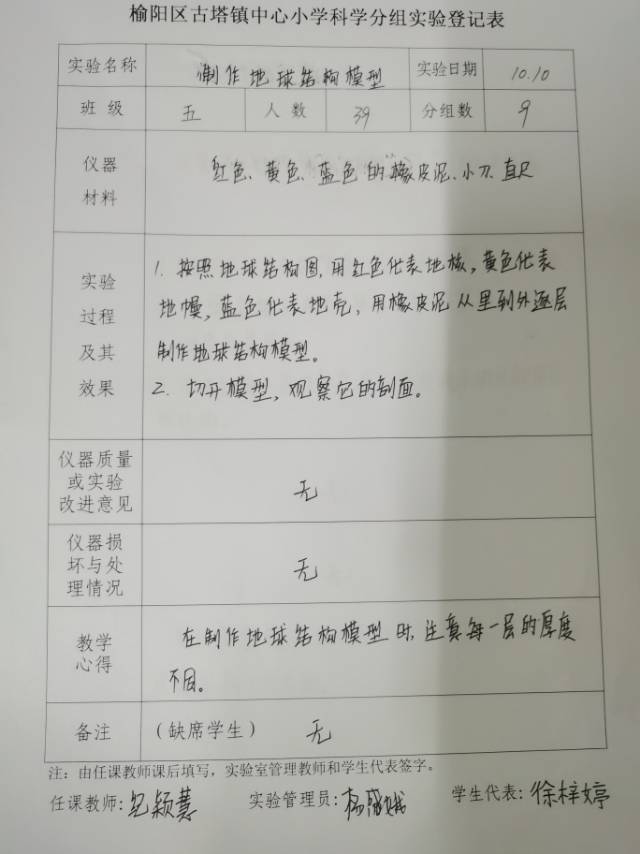 榆阳区古塔镇中心小学科学分组实验登记表
实验名称 制作地球结构模型 实验日期 10.10
班 级 五 人 数 39 分组数 9
仪器
材料
红色、黄色、蓝色的橡皮泥、小刀、直尺
实验
过程
及其
效果
1. 按照地球结构图,用红色代表地核,黄色代表
地幔,蓝色代表地壳,用橡皮泥从里到外逐层
制作地球结构模型。
2. 切开模型,观察它的剖面。
仪器质量
或实验
改进意见
无
仪器损
坏与处
理情况
无
教学
心得
在制作地球结构模型时,注意每一层的厚度
不同。
备注 (缺席学生) 无
注:由任课教师课后填写,实验室管理教师和学生代表签字。
任课教师: 实验管理员: 学生代表:徐梓婷